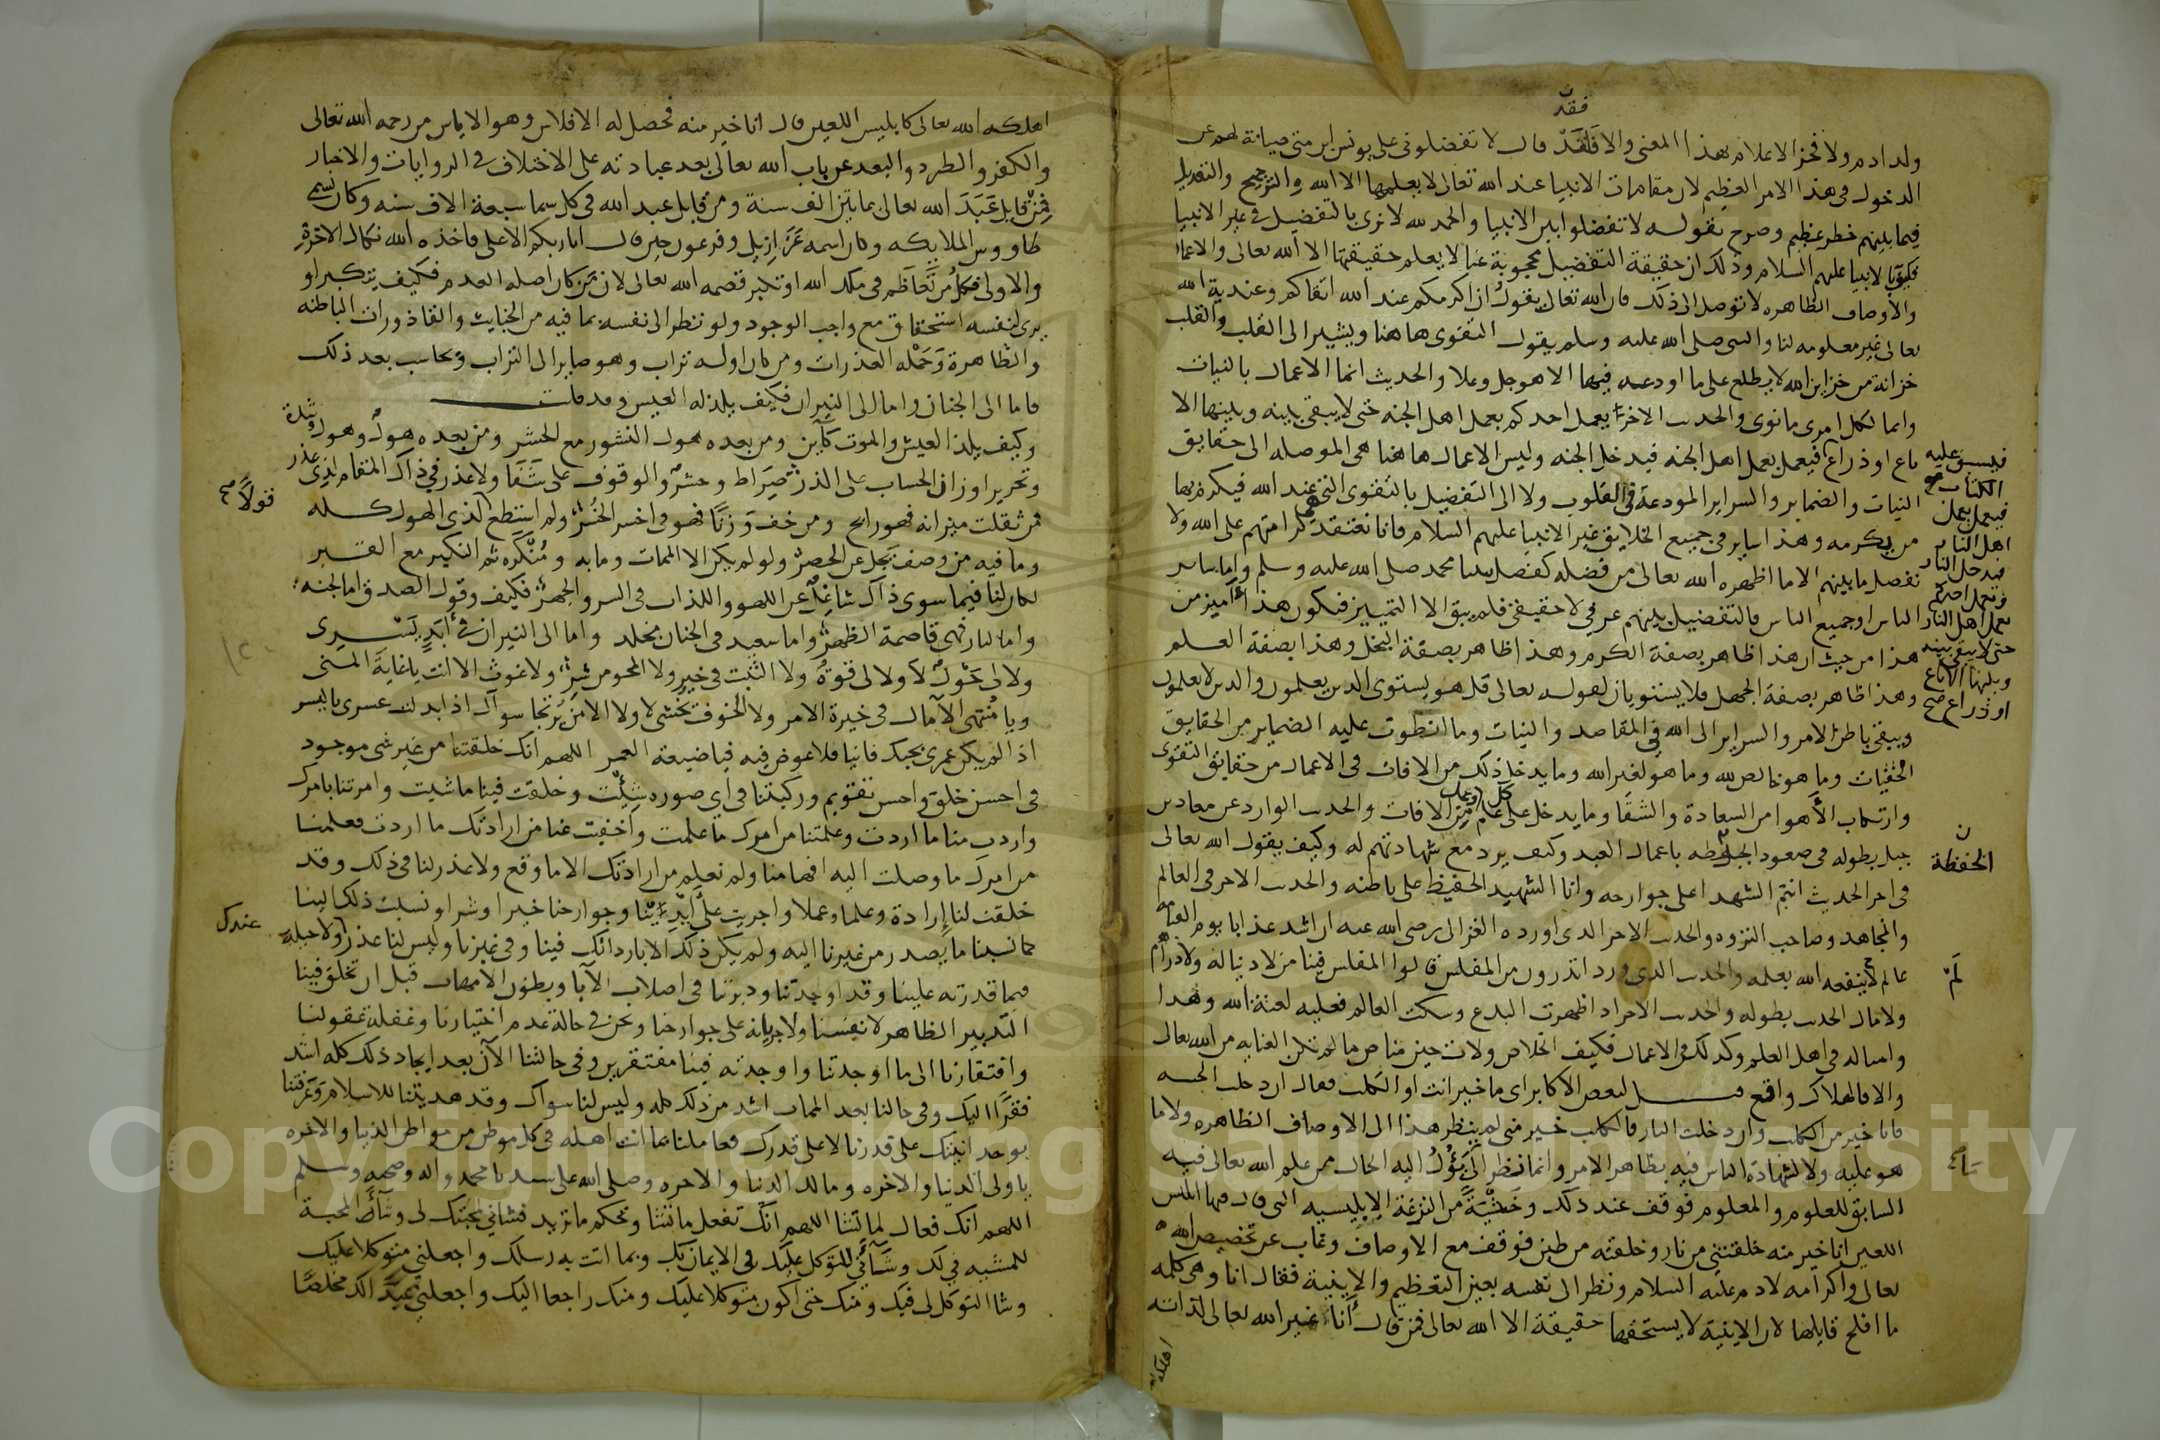 فقد
ولد ادم ولا فخر الاعلام بهذا المعنى والا فَلَقَدْ قال لا تفضلوني على يونس ابن متى صيانة لهم عن
الدخول في هذا الامر العظيم لان مقامات الانبيا عند الله تعالى لا يعلمها الا الله والترجيح والتفضيل
فيما بينهم خطر عظيم وصرح بقوله لا تفضلوا بين الانبيا والحمد لله لا نرى بالتفضيل في غير الانبيا
فكيف بالانبيا عليهم السلام وذلك ان حقيقة التفضيل محجوبة عنا لا يعلم حقيقتها الا الله تعالى والاعمال
والاوصاف الظاهره لا توصل الى ذلك قال الله تعالى يقول ان اكرمكم عند الله اتقاكم وعندية الله
تعالى غير معلومه لنا والنبي صلى الله عليه وسلم يقول التقوى هاهنا ويشير الى القلب والقلب
خزانة من خزاين الله لا يطلع على ما اودعه فيها الا هو جل وعلا والحديث انما الاعمال بالنيات
وانما لكل امرى ما نوى والحديث الاخر يعمل احدكم بعمل اهل الجنه حتى لا يبقى بينه وبينها الا
باع او ذراع فيعمل بعمل اهل الجنه فيدخل الجنه وليس الاعمال هاهنا هي الموصله الى حقايق
النيات والضماير والسراير المودعة في القلوب ولا الى التفضيل بالتقوى التي عند الله فيكرم بها
من يكرمه وهذا ساير في جميع الخلايق غير الانبيا عليهم السلام فانا نعتقد كرامتهم على الله ولا
نفصل ما بينهم الا ما اظهره الله تعالى من فضله كفضل نبينا محمد صلى الله عليه وسلم واما ساير
الناس او جميع الناس فالتفضيل بينهم عرفي لا حقيقي فلم يبق الا التمييز فنكون هذا أميز من
هذا من حيث ان هذا ظاهر بصفة الكرم وهذا ظاهر بصفة البخل وهذا بصفة العلم
وهذا ظاهر بصفة الجهل فلا يستويان لقوله تعالى قل هو يستوى الذين يعلمون والذين لا يعلمون
ويبقى باطن الامر والسراير الى الله في المقاصد والنيات وما انطوت عليه الضماير من الحقايق
الخفيات وما هو خالص لله وما هو لغير الله وما يدخل ذلك من الافات في الاعمال من حقايق التقوى
وارتكاب الأهوا من السعادة والشقا وما يدخل على كل علم وعمل من الافات والحديث الوارد عن معاذ بن
جبل بطوله في صعود الحفظه باعمال العبد وكيف يرد مع شهادتهم له وكيف يقول الله تعالى
في اخر الحديث انتم الشهدا على جوارحه وانا الشهيد الحفيظ على باطنه والحديث الاخر في العالم
والمجاهد وصاحب الثروه والحديث الاخر الذي اورده الغزالي رضي الله عنه ان اشد عذابا يوم القيامه
عالم لا ينفعه الله بعلمه والحديث الذي ورد اتدرون من المفلس قالوا المفلس فينا من لا دينار له ولا درهم
ولا مال الحديث بطوله والحديث الاخر اذا ظهرت البدع وسكت العالم فعليه لعنة الله وهذا
وامثاله في اهل العلم وكذلك في الاعمال فكيف الخلاص ولات حين مناص ما لم تكن العنايه من الله تعالى
والا فالهلاك واقع قيل لبعض الاكابر اي ما خير انت او الكلب فقال ان دخلت الجنه
فانا خير من الكلب وان دخلت النار فالكلب خير مني لم ينظر هذا الى الاوصاف الظاهره ولا ما
هو عليه ولا لشهادة الناس فيه بظاهر الامر وانما نظر الى ما يَؤُلُ اليه الحال من علم الله تعالى فيه
السابق للعلوم والمعلوم فوقف عند ذلك وخَشْيَةً من النزغة الابليسيه التي قال فيها ابليس
اللعين انا خير منه خلقتني من نار وخلقته من طين فوقف مع الاوصاف وغاب عن تخصيص الله
تعالى واكرامه لادم عليه السلام ونظر الى نفسه بعين التعظيم والإينية فقال انا وهي كلمه
ما افلح قايلها لان الاينية لا يستحقها حقيقة الا الله تعالى فمن قال أنا غير الله تعالى لذاته
اهلكه
فيسبق عليه
الكتاب
فيعمل بعمل
اهل النار
فيدخل النار
ويعمل احدكم
بعمل اهل النار
حتى لا يبقى بينه
وبينها الا باع
او ذراع صح
ن
الحفظة
لَمْ
اهلكه الله تعالى كابليس اللعين قال انا خير منه فحصل له الافلاس وهو الاياس من رحمه الله تعالى
والكفر والطرد والبعد عن باب الله تعالى بعد عبادته على الاختلاف في الروايات والاخبار
فمِنْ قايل عَبَدَ الله تعالى بمايتي الف سنة ومن قايل عبد الله في كل سما سبعة الاف سنه وكان يسمى
طاووس الملايكه وكان اسمه عَزَازيل وفرعون حين قال انا ربكم الاعلى فاخذه الله نكال الاخرة
والاولى فكل من تَعَاظَم في ملك الله او تكبر قصمه الله تعالى لان مَن كان اصله العدم فكيف يتكبر او
يرى لنفسه استحقاق مع واجب الوجود ولو نظر الى نفسه بما فيه من الخبايث والقاذورات الباطنه
والظاهرة وَحَمْله العذرات ومن كان اوله تراب وهو صاير الى التراب ويحاسب بعد ذلك
فاما الى الجنان واما الى النيران فكيف يلذ له العيش وقد قلت
وكيف يلذ العيش والموت كآين ومن بعده هول النشور مع الحشر ومن بعده هولٌ وهول وشدة
وتحرير اوزان الحساب على الذر صِرَاط وحشرٌ والوقوف على شَفَا ولا عذر في ذاك المقام لذي عذر
فمن ثقلت ميزانه فهو رابح ومن خف وَزنًا فهو في اخسر الخُسْر ولم استطع لذي الهول كله
وما فيه من وصف يَجل عن الحصر ولو لم يكن الا الممات وما به ومُنْكَره ثم النكير مع القبر
لكان لنا فيما سوى ذاك شاغِلٌ عن اللهو واللذات في السر والجهر فكيف وقول الصدق اما لجنه
واما لنار فهي قاصمة الظهر واما سعيد في الجنان مخلد واما الى النيران في أَبَدٍ يَسْرِي
ولا لى حَوْلٌ لا ولا لى قوةٌ ولا الثَبت في خيرٍ ولا المحو من شر ولا غوث الا انت يا غاية المنى
ويا مُنْتهى الآمال في خيرة الامر ولا الخوف يُخشى لا ولا الامن يُرتجا سواك اذا بدلت عسرى باليسر
اذا لم يكن عمرى بحبك فانيا فلا عوض فيه فيا ضيعة العمر اللهم انك خلقتنا من غير شى موجود
في احسن خلق واحسن تقويم وركبتنا في اي صوره شِئْت وخلقت فينا ما شيت وامرتنا بامرك
واردت منا ما اردت وعلمتنا من امرك ما علمت واخفيت عنا من ارادتك ما اردت فعلمنا
من امرك ما وصلت اليه افهامنا ولم نعلم من ارادتك الا ما وقع ولا عذر لنا في ذلك وقد
خلقت لنا إرادة وعلما وعملا واجريت على أَيْدِيْنا وجوارحنا خيرا وشرا ونسبت ذلك الينا
كما نسبنا ما يصدر من غيرنا اليه ولم يكن ذلك الا بارداتك فينا وفي غيرنا وليس لنا عذر ولا حيلة
فيما قدرته علينا وقد اوجدتنا ودبرتنا في اصلاب الآبا وبطون الامهات قبل ان تخلق فينا
التدبير الظاهر لانفسنا ولا جريانه على جوارحنا ونحن في حالة عدم اختيارنا وغفلة عقولنا
وافتقارنا الى ما اوجدتنا واوجدته فينا مفتقرين وفي حالتنا الآن بعد ايجاد ذلك كله اشد
فقرًا اليك وفي حالنا بعد الممات اشد من ذلك كله وليس لنا سواك وقد هديتنا للاسلام وعَرَفتنا
بوحدانيتك على قدرنا لا على قدرك فعاملنا بما انت اهله في كل موطن من مواطن الدنيا والاخره
يا ولي الدنيا والاخره ومالك الدنيا والاخره وصلى الله على سيدنا محمد واله وصحبه وسلم
اللهم انك فعال لما تشا اللهم انك تفعل ما تشا وتحكم ما تريد فشاني لمحبتك لى وشَأَ المحبة
للمشيه في لك وشَأْنِي للتوكل عليك في الايمان بك وبما اتت به رسلك واجعلني متوكلا عليك
وشا التوكل لى فيك ومنك حتى اكون متوكلا عليك ومنك راجعا اليك واجعلني عَبْدًا لك مخلصًا
قولاً صح
عندك
Copyright © King Saud University